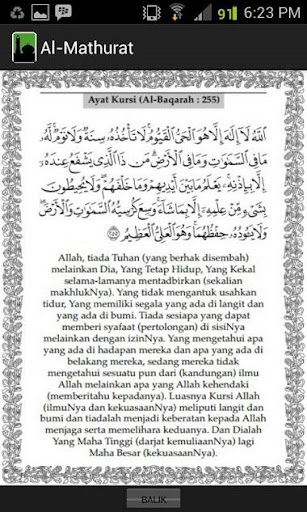 91 6:23 PM
Al-Mathurat
Ayat Kursi (Al-Baqarah : 255)
اللَّهُ لَا إِلَٰهَ إِلَّا هُوَ الْحَيُّ الْقَيُّومُ لَا تَأْخُذُهُ سِنَةٌ وَلَا نَوْمٌ لَّهُ
مَا فِي السَّمَاوَاتِ وَمَا فِي الْأَرْضِ مَن ذَا الَّذِي يَشْفَعُ عِندَهُ
إِلَّا بِإِذْنِهِ يَعْلَمُ مَا بَيْنَ أَيْدِيهِمْ وَمَا خَلْفَهُمْ وَلَا يُحِيطُونَ
بِشَيْءٍ مِّنْ عِلْمِهِ إِلَّا بِمَا شَاءَ وَسِعَ كُرْسِيُّهُ السَّمَاوَاتِ وَالْأَرْضَ
وَلَا يَئُودُهُ حِفْظُهُمَا وَهُوَ الْعَلِيُّ الْعَظِيمُ ٢٥٥
Allah, tiada Tuhan (yang berhak disembah)
melainkan Dia, Yang Tetap Hidup, Yang Kekal
selama-lamanya mentadbirkan (sekalian
makhlukNya). Yang tidak mengantuk usahkan
tidur, Yang memiliki segala yang ada di langit dan
yang ada di bumi. Tiada sesiapa yang dapat
memberi syafaat (pertolongan) di sisiNya
melainkan dengan izinNya. Yang mengetahui apa
yang ada di hadapan mereka dan apa yang ada di
belakang mereka, sedang mereka tidak
mengetahui sesuatu pun dari (kandungan) ilmu
Allah melainkan apa yang Allah kehendaki
(memberitahu kepadanya). Luasnya Kursi Allah
(ilmuNya dan kekuasaanNya) meliputi langit dan
bumi dan tiadalah menjadi keberatan kepada Allah
menjaga serta memelihara keduanya. Dan Dialah
Yang Maha Tinggi (darjat kemuliaanNya) lagi
Maha Besar (kekuasaanNya).
BALIK